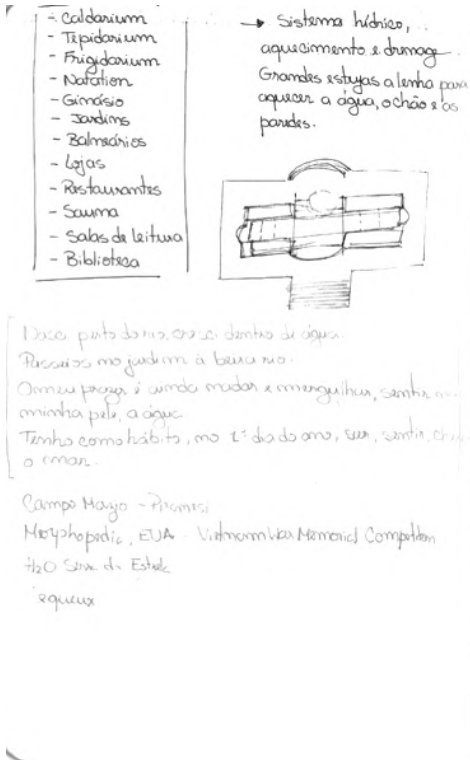 - Caldarium
- Tepidarium
- Frigidarium
- Natation
- Gimásio
- Jardins
- Balneários
- Lojas
- Restaurantes
- Sauna
- Salas de leitura
- Biblioteca
→ Sistema hídrico,
aquecimento e drenage
Grandes estufas a lenha para
aquecer a água, o chão e as
paredes.
Nasci perto do rio, cresci dentro de água.
Passeios no jardim à beira rio.
O meu prazer é ainda nadar e mergulhar, sentir na
minha pele, a água.
Tenho como hábito, no 1º dia do ano, ver, sentir,
o mar.
Campo Marzio - Piranesi
Morphopedic, EUA Vietnam War Memorial Competition
H2O Serra da Estrela